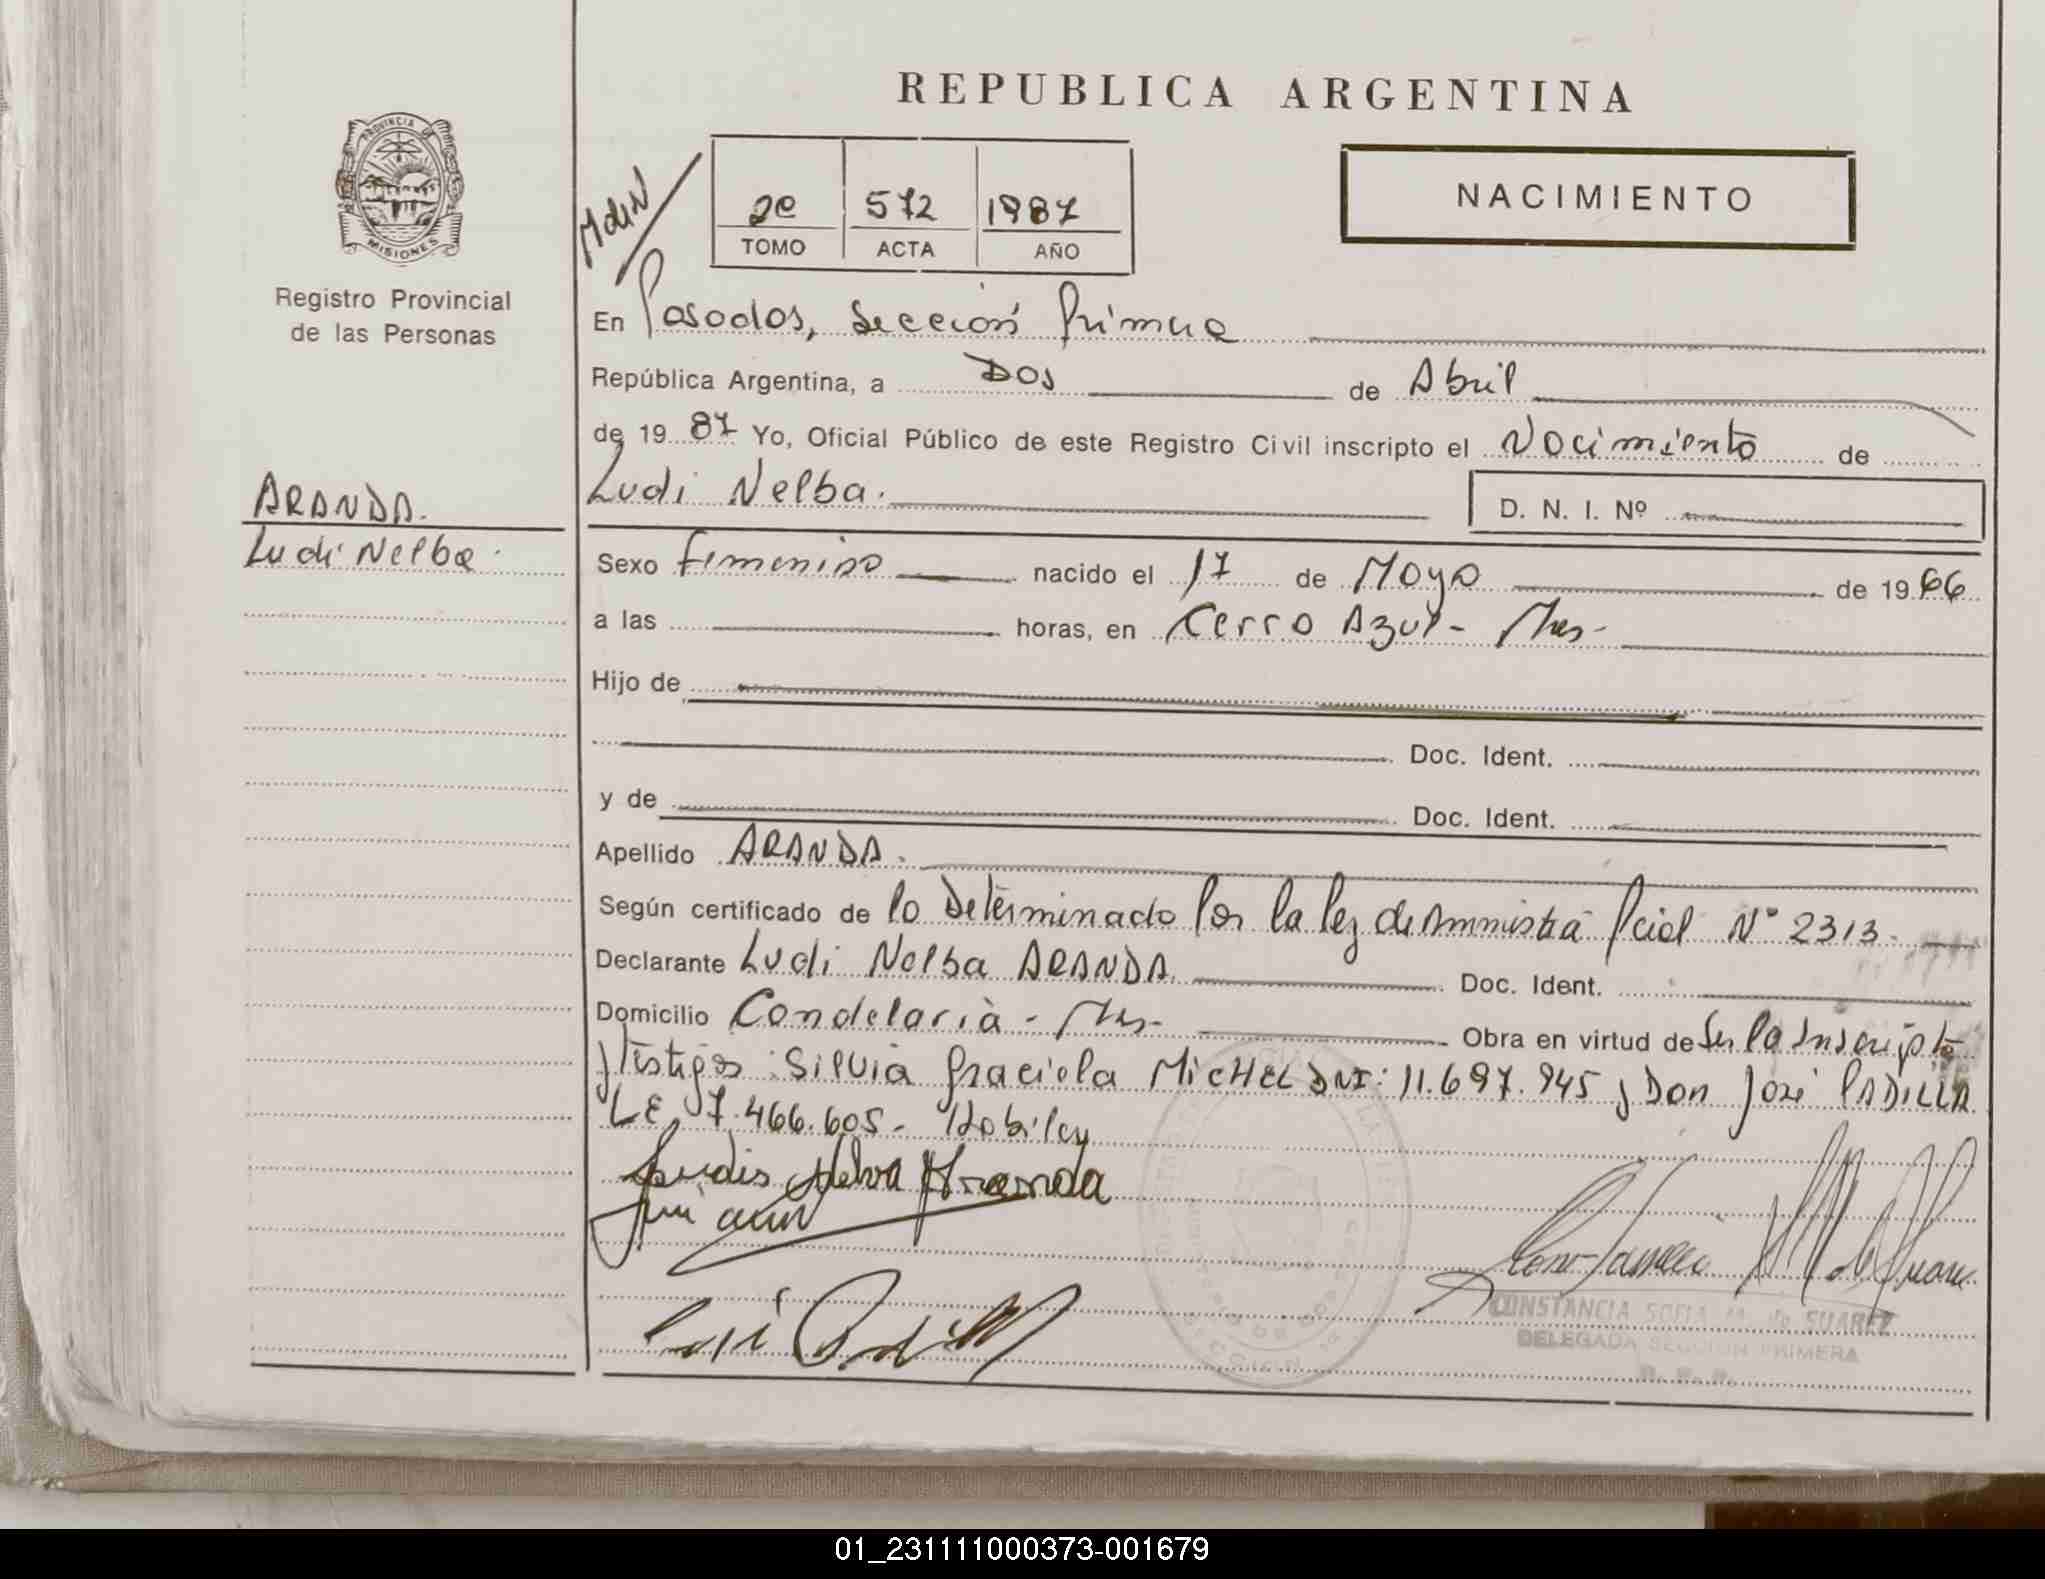 REPUBLICA ARGENTINA
NACIMIENTO
PROVINCIA DE
MISIONES
Registro Provincial
de las Personas
2e 572 1987
TOMO ACTA AÑO
En Posadas, Sección Primera
República Argentina, a Dos de Abril
de 1987 Yo, Oficial Público de este Registro Civil inscripto el Nacimiento de
Ludi Nelba. D. N. I. Nº
ARANDA.
Ludi Nelba.
Sexo Femenino nacido el 17 de Mayo de 1966
a las horas, en Cerro Azul - Mnes-
Hijo de
Doc. Ident.
y de Doc. Ident.
Apellido ARANDA.
Según certificado de lo Determinado Por la ley de Amnistia Pcial Nº 2313-
Declarante Ludi Nelba ARANDA. Doc. Ident.
Domicilio Candelaria - Mnes- Obra en virtud de Ser la Inscripta
y testigos: Silvia Graciela MICHEL DNI: 11.697.945 y Don José PADILLA
LE 7.466.605- Hobiles
Ludis Nelva Aranda
José Padilla
CONSTANCIA SOFIA M. de SUAREZ
DELEGADA SECCION PRIMERA
R. P. P.
01_231111000373-001679